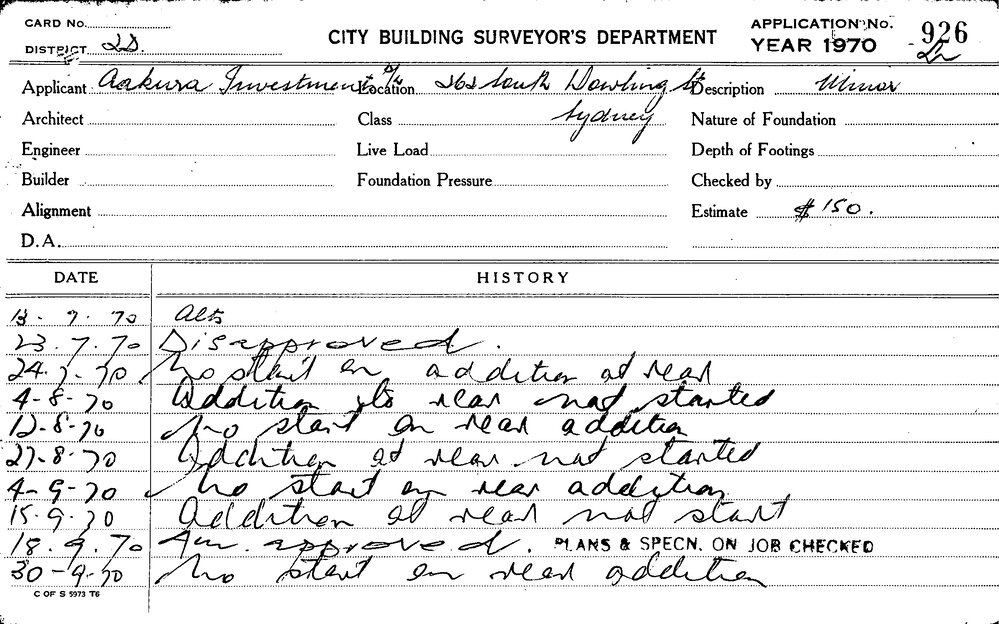 CARD No.
DISTRICT 2D.
CITY BUILDING SURVEYOR'S DEPARTMENT
APPLICATION No. 926
YEAR 1970
Applicant Aakura Investment P/L
Location 262 South Dowling St
Sydney
Description Minor
Architect
Class
Nature of Foundation
Engineer
Live Load
Depth of Footings
Builder
Foundation Pressure
Checked by
Alignment
Estimate $150.
D.A.
DATE HISTORY
13-7-70 Alts
23.7.70 Disapproved.
24-7-70 No start on addition at rear
4-8-70 Addition to rear not started
12-8-70 No start on rear addition
27-8-70 Addition at rear not started
4-9-70 No start on rear addition
15-9-70 Addition at rear not start
18.9.70 Am. approved. PLANS & SPECN. ON JOB CHECKED
30-9-70 No start on rear addition
C OF S 5973 T6